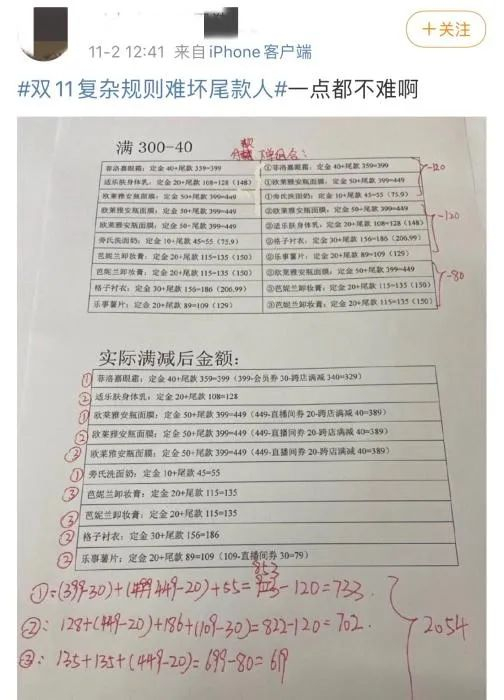 +关注
11-2 12:41 来自iPhone客户端
#双11复杂规则难坏尾款人#一点都不难啊
满 300-40
下单组合:
菲洛嘉眼霜:定金 40+尾款 359=399
①菲洛嘉眼霜:定金 40+尾款 359=399
-120
适乐肤身体乳:定金 20+尾款 108=128(148)
①欧莱雅安瓶面膜:定金 50+尾款 399=449
欧莱雅安瓶面膜:定金 50+尾款 399=449
①旁氏洗面奶:定金 10+尾款 45=55(75.9)
欧莱雅安瓶面膜:定金 50+尾款 399=449
②欧莱雅安瓶面膜:定金 50+尾款 399=449
-120
欧莱雅安瓶面膜:定金 50+尾款 399=449
②适乐肤身体乳:定金 20+尾款 108=128(148)
旁氏洗面奶:定金 10+尾款 45=55(75.9)
②格子衬衣:定金 30+尾款 156=186(206.99)
芭妮兰卸妆膏:定金 20+尾款 115=135(150)
②乐事薯片:定金 20+尾款 89=109(129)
芭妮兰卸妆膏:定金 20+尾款 115=135(150)
③欧莱雅安瓶面膜:定金 50+尾款 399=449
-80
格子衬衣:定金 30+尾款 156=186(206.99)
③芭妮兰卸妆膏:定金 20+尾款 115=135(150)
乐事薯片:定金 20+尾款 89=109(129)
③芭妮兰卸妆膏:定金 20+尾款 115=135(150)
实际满减后金额:
① 菲洛嘉眼霜:定金 40+尾款 359=399(399-会员券 30-跨店满减 340=329)
② 适乐肤身体乳:定金 20+尾款 108=128
① 欧莱雅安瓶面膜:定金 50+尾款 399=449(449-直播间券 20-跨店满减 40=389)
② 欧莱雅安瓶面膜:定金 50+尾款 399=449(449-直播间券 20-跨店满减 40=389)
② 欧莱雅安瓶面膜:定金 50+尾款 399=449(449-直播间券 20-跨店满减 40=389)
① 旁氏洗面奶:定金 10+尾款 45=55
③ 芭妮兰卸妆膏:定金 20+尾款 115=135
③ 芭妮兰卸妆膏:定金 20+尾款 115=135
② 格子衬衣:定金 30+尾款 156=186
② 乐事薯片:定金 20+尾款 89=109(109-直播间券 30=79)
①=(399-30)+(449-20)+55=853-120=733.
②:128+(449-20)+186+(109-30)=822-120=702.
③:135+135+(449-20)=699-80=619
2054